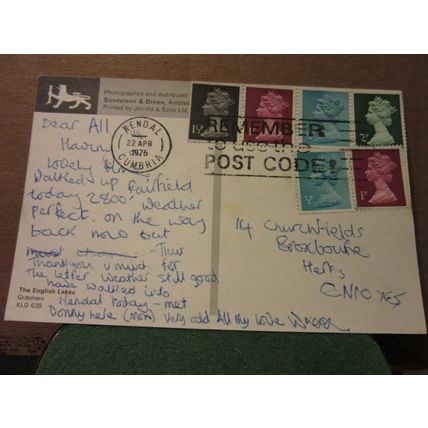 Photographed and distributed
Sanderson & Dixon, Ambles
Printed by Jarrold & Sons Ltd,
KENDAL
22 APR
1976
CUMBRIA
REMEMBER
to use the
POST CODE
1½
2p
½p
1p
Dear All
Having
lovely time
Walked up Fairfield
today 2800' weather
perfect. on the way
back now but
- Thur
Thankyou v much for
the letter weather still good
have walked into
Kendal today - met
Donny here (mon) very odd All my love
The English Lakes
Grasmere
KLD 639
14 Churchfields
Broxbourne
Herts
EN10